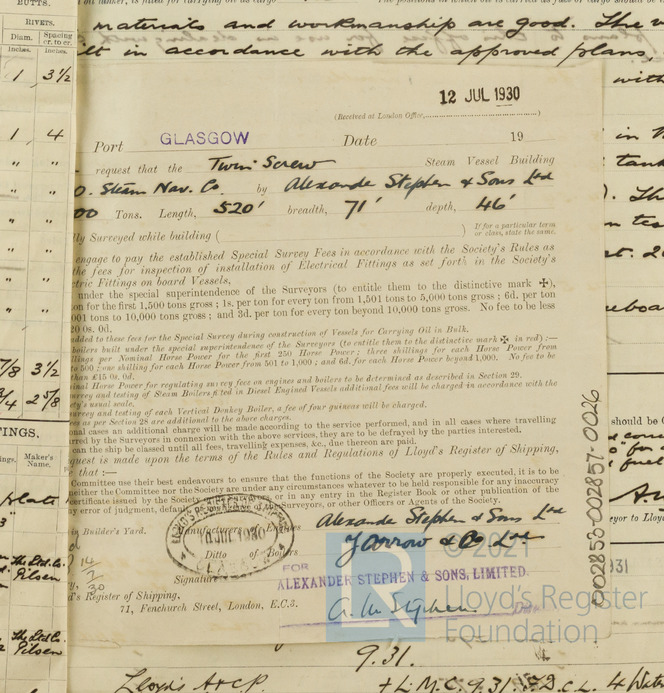 BUTTS.
RIVETS.
Diam. Spacing cr. to cr.
Inches. Inches.
1 3½
1 4
" "
" "
" "
" "
" "
" "
7/8 3½
3/4 2 5/8
INGS.
ngs. Maker's Name.
The Ltd. Co. Pilsen
The Ltd. Co. Pilsen
materials and workmanship are good. The
ilt in accordance with the approved plans,
with
12 JUL 1930
(Received at London Office,
Port GLASGOW Date 19
request that the Twin Screw Steam Vessel Building
O. Steam Nav. Co. by Alexander Stephen & Sons Ltd
00 Tons. Length, 520' breadth, 71' depth, 46'
lly Surveyed while building ( ) If for a particular term or class, state the same.
engage to pay the established Special Survey Fees in accordance with the Society's Rules as
the fees for inspection of installation of Electrical Fittings as set forth in the Society's
ctric Fittings on board Vessels,
under the special superintendence of the Surveyors (to entitle them to the distinctive mark ✠),
on for the first 1,500 tons gross ; 1s. per ton for every ton from 1,501 tons to 5,000 tons gross ; 6d. per ton
001 tons to 10,000 tons gross ; and 3d. per ton for every ton beyond 10,000 tons gross. No fee to be less
20 0s. 0d.
added to these fees for the Special Survey during construction of Vessels for Carrying Oil in Bulk.
boilers built under the special superintendence of the Surveyors (to entitle them to the distinctive mark ✠ in red) :—
llings per Nominal Horse Power for the first 250 Horse Power ; three shillings for each Horse Power from
to 500 ; one shilling for each Horse Power from 501 to 1,000 ; and 6d. for each Horse Power beyond 1,000. No fee to be
than £15 0s. 0d.
inal Horse Power for regulating survey fees on engines and boilers to be determined as described in Section 29.
urvey and testing of Steam Boilers fitted in Diesel Engined Vessels additional fees will be charged in accordance with the
ety's usual scale.
urvey and testing of each Vertical Donkey Boiler, a fee of four guineas will be charged.
ees as per Section 28 are additional to the above charges.
onal cases an additional charge will be made according to the service performed, and in all cases where travelling
rred by the Surveyors in connection with the above services, they are to be defrayed by the parties interested.
can the ship be classed until all fees, travelling expenses, &c., due thereon are paid.
quest is made upon the terms of the Rules and Regulations of Lloyd's Register of Shipping,
that :—
Committee use their best endeavours to ensure that the functions of the Society are properly executed, it is to be
neither the Committee nor the Society are under any circumstances whatever to be held responsible for any inaccuracy
ertificate issued by the Society or in any entry in the Register Book or other publication of the
y error of judgment, default Surveyors, or other Officers or Agents of the Society.
n Builder's Yard. Manufacturers of Engines Alexander Stephen & Sons Ltd
Ditto of Boilers Yarrow & Co Ltd
10 JUL 1930
14/7/30
Signature FOR
ALEXANDER STEPHEN & SONS, LIMITED.
d's Register of Shipping,
71, Fenchurch Street, London, E.C.3.
002853-002857-0026
should be C
eyor to Lloyd
931
© 2021
LR
Lloyd's Register
Foundation
9.31.
Lloyd's A & C P. + L.M.C. 9.31